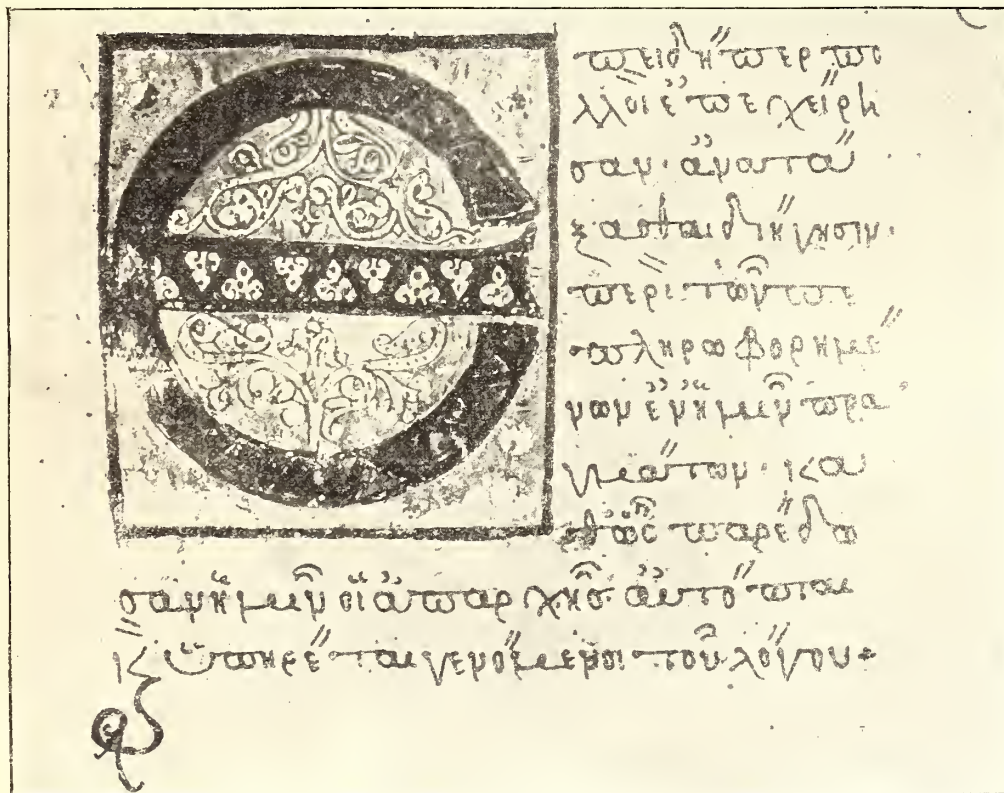 Ἐπειδήπερ πο
λλοὶ ἐπεχείρη
σαν· ἀνατά
ξασθαι διήγησιν·
περὶ τῶν πε
πληροφορημέ
νων ἐν ἡμῖν πρα
γμάτων· κα
θὼς παρέδο
σαν ἡμῖν οἱ ἀπαρχῆς αὐτόπται
κ ὑπηρέται γενόμενοι τοῦ λόγου·